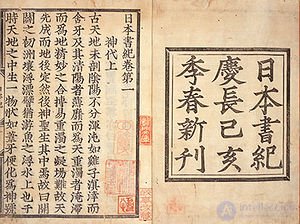 日本書紀
慶長己亥
季春新刊
日本書紀卷第一
神代上
古天地未剖陰陽不分渾沌如雞子溟涬而
含牙及其清陽者薄靡而爲天重濁者淹滯
而爲地精妙之合摶易重濁之凝場難故天
先成而地後定然後神聖生其中焉故曰開
闢之初洲壤浮漂譬猶游魚之浮水上也于
時天地之中生一物狀如葦牙便化爲神